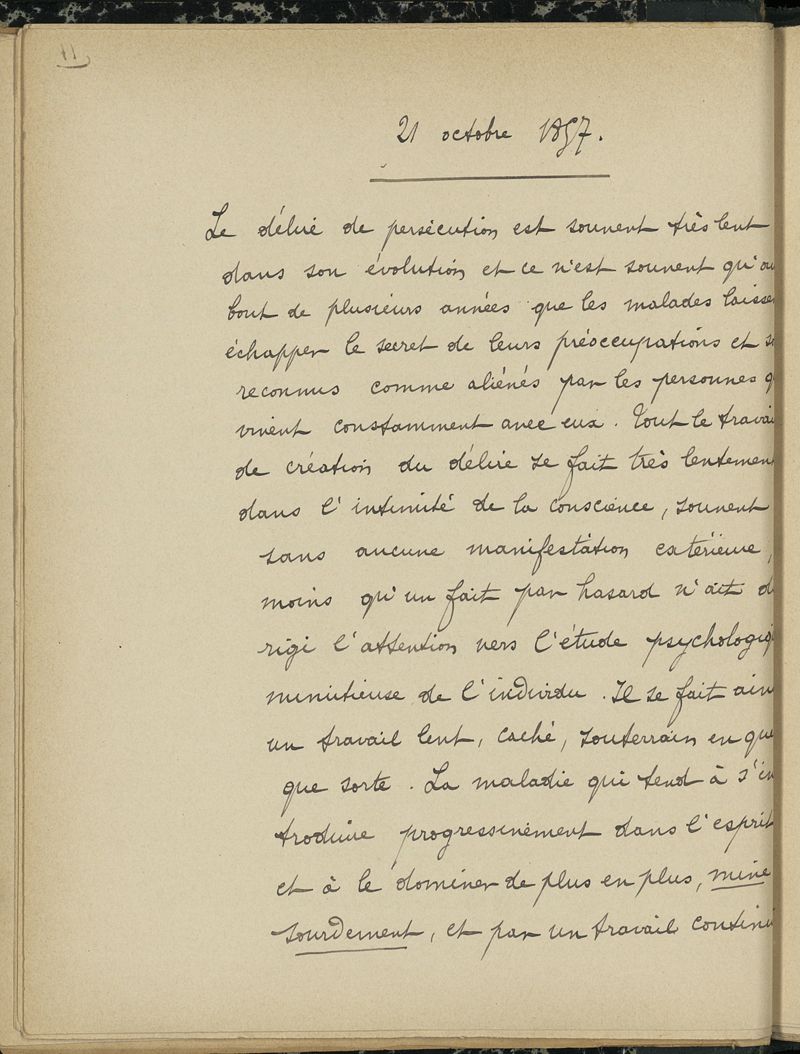 11
21 octobre 1897.
Le délire de persécution est souvent très lent
dans son évolution et ce n'est souvent qu'au
bout de plusieurs années que les malades laisse
échapper le secret de leurs préoccupations et s
reconnus comme aliénés par les personnes q
vivent constamment avec eux. Tout le travai
de création du délire se fait très lentemen
dans l'intimité de la conscience, souvent
sans aucune manifestation extérieure,
moins qu'un fait par hasard n'ait d
rigé l'attention vers l'étude psychologiq
minutieuse de l'individu. Il se fait ain
un travail lent, caché, souterrain en que
que sorte. La maladie qui tend à s'in
troduire progressivement dans l'esprit
et à le dominer de plus en plus, mine
sourdement, et par un travail continu